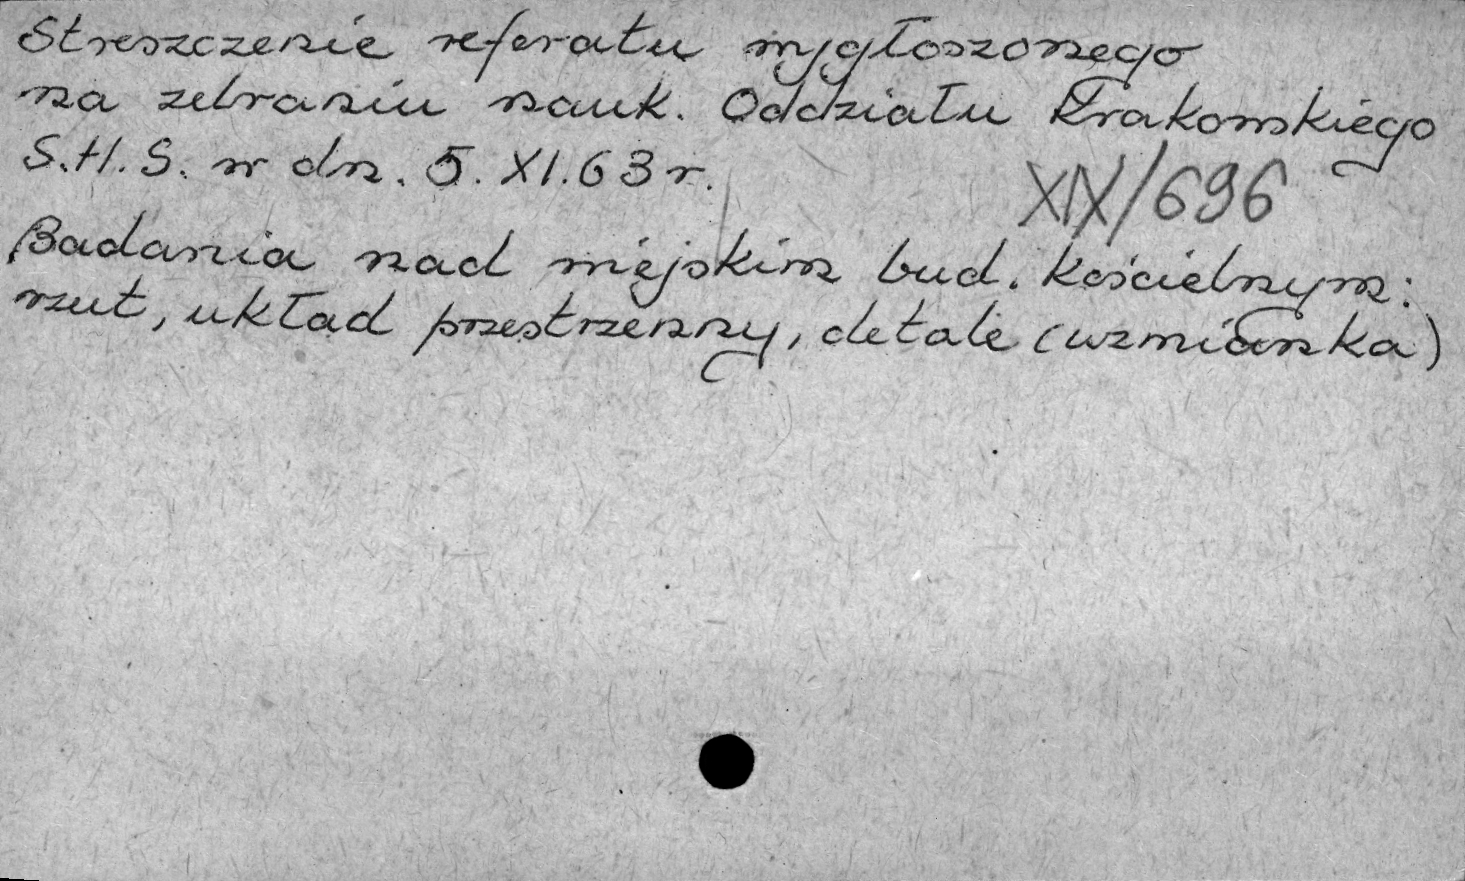 Streszczenie referatu wygłoszonego
na zebraniu nauk. Oddziału Krakowskiego
S.H.S. w dn. 5. XI. 63 r.
XIX/696
Badania nad miejskim bud. kościelnym:
rzut, układ przestrzenny, detale (wzmianka)